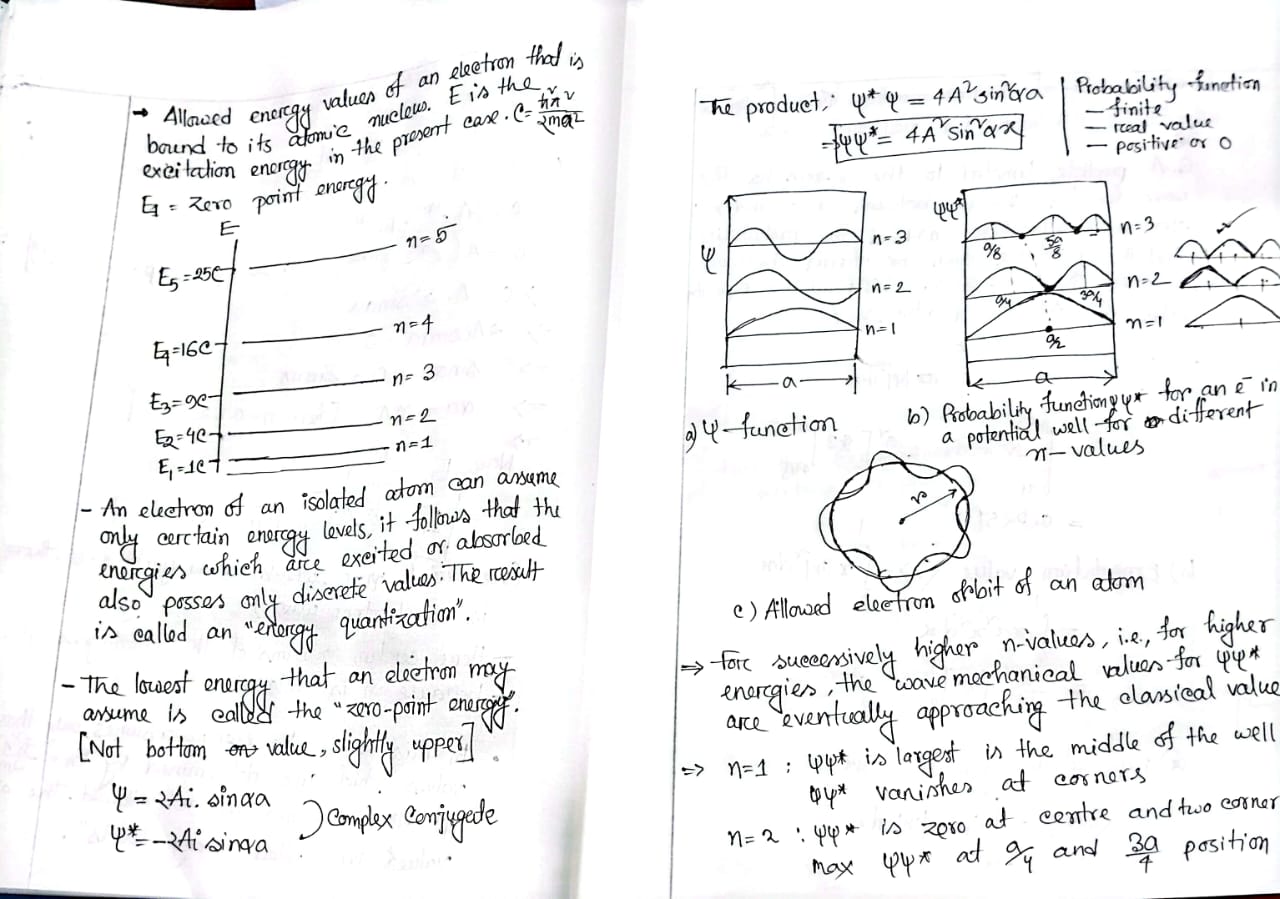 → Allowed energy values of an electron that is
bound to its atomic nucleus. E is the
excitation energy in the present case. C = ħ²π²/2ma²
E₁ = Zero point energy.
E
E₅=25C
n=5
E₄=16C
n=4
E₃=9C
n=3
E₂=4C
n=2
E₁=1C
n=1
- An electron of an isolated atom can assume
only certain energy levels, it follows that the
energies which are excited or absorbed
also posses only discrete values. The result
is called an "energy quantization".
- The lowest energy that an electron may
assume is called the "zero-point energy".
[Not bottom value, slightly upper]
ψ = 2Ai. sinαa
ψ* = -2Ai sinαa
Complex Conjugede
The product, ψ*ψ = 4A²sin²αa
⇒ ψψ* = 4A² sin²αx
Probability function
- finite
- real value
- positive or 0
ψ
n=3
n=2
n=1
a
a) ψ-function
ψψ*
n=3
a/8
5a/8
n=2
a/4
3a/4
n=1
a/2
a
b) Probability function ψψ* for an e⁻ in
a potential well for different
n-values
r
c) Allowed electron orbit of an atom
⇒ for successively higher n-values, i.e., for higher
energies, the wave mechanical values for ψψ*
are eventually approaching the classical value
⇒ n=1 : ψψ* is largest is the middle of the well
ψψ* vanishes at corners
n=2 : ψψ* is zero at centre and two corner
max ψψ* at a/4 and 3a/4 position